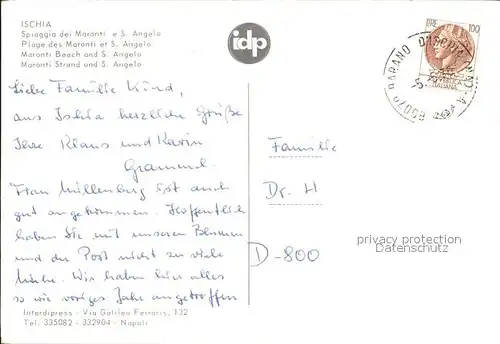 ISCHIA
Spiaggia dei Maronti e S. Angelo
Plage des Maronti et S. Angelo
Maronti Beach and S. Angelo
Maronti Strand und S. Angelo
idp
100
ITALIANA
BARANO D'ISCHIA
80070
Liebe Familie Kind,
aus Ischia herzliche Grüße
Ihre Klaus und Karin
Frau Müllenberg ist auch
gut angekommen. Hoffentlich
haben Sie mit unseren Blumen
und der Post nicht zu viele
Mühe. Wir haben hier alles
so wie voriges Jahr angetroffen
Familie
Dr. H
D-800
privacy protection
Datenschutz
Interdipress - Via Galileo Ferraris, 132
Tel. 335082 - 332904 - Napoli